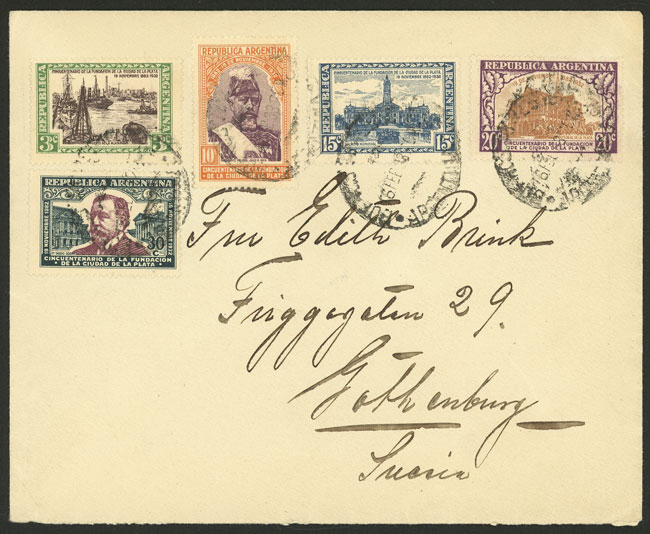 CINCUENTENARIO DE LA FUNDACION DE LA CIUDAD DE LA PLATA
19 NOVIEMBRE 1882-1932
REPUBLICA
ARGENTINA
3c
REPUBLICA ARGENTINA
10c
CINCUENTENARIO DE LA FUNDACION
DE LA CIUDAD DE LA PLATA
CINCUENTENARIO DE LA FUNDACION DE LA CIUDAD DE LA PLATA
19 NOVIEMBRE 1882-1932
REPUBLICA
ARGENTINA
15c
15c
REPUBLICA ARGENTINA
20c
20c
CINCUENTENARIO DE LA FUNDACION
DE LA CIUDAD DE LA PLATA
REPUBLICA ARGENTINA
19 NOVIEMBRE 1882
19 NOVIEMBRE 1932
30
C.
CINCUENTENARIO DE LA FUNDACION
DE LA CIUDAD DE LA PLATA
Fru Edith Brink
Friggagatan 29.
Gothenburg
Suecia